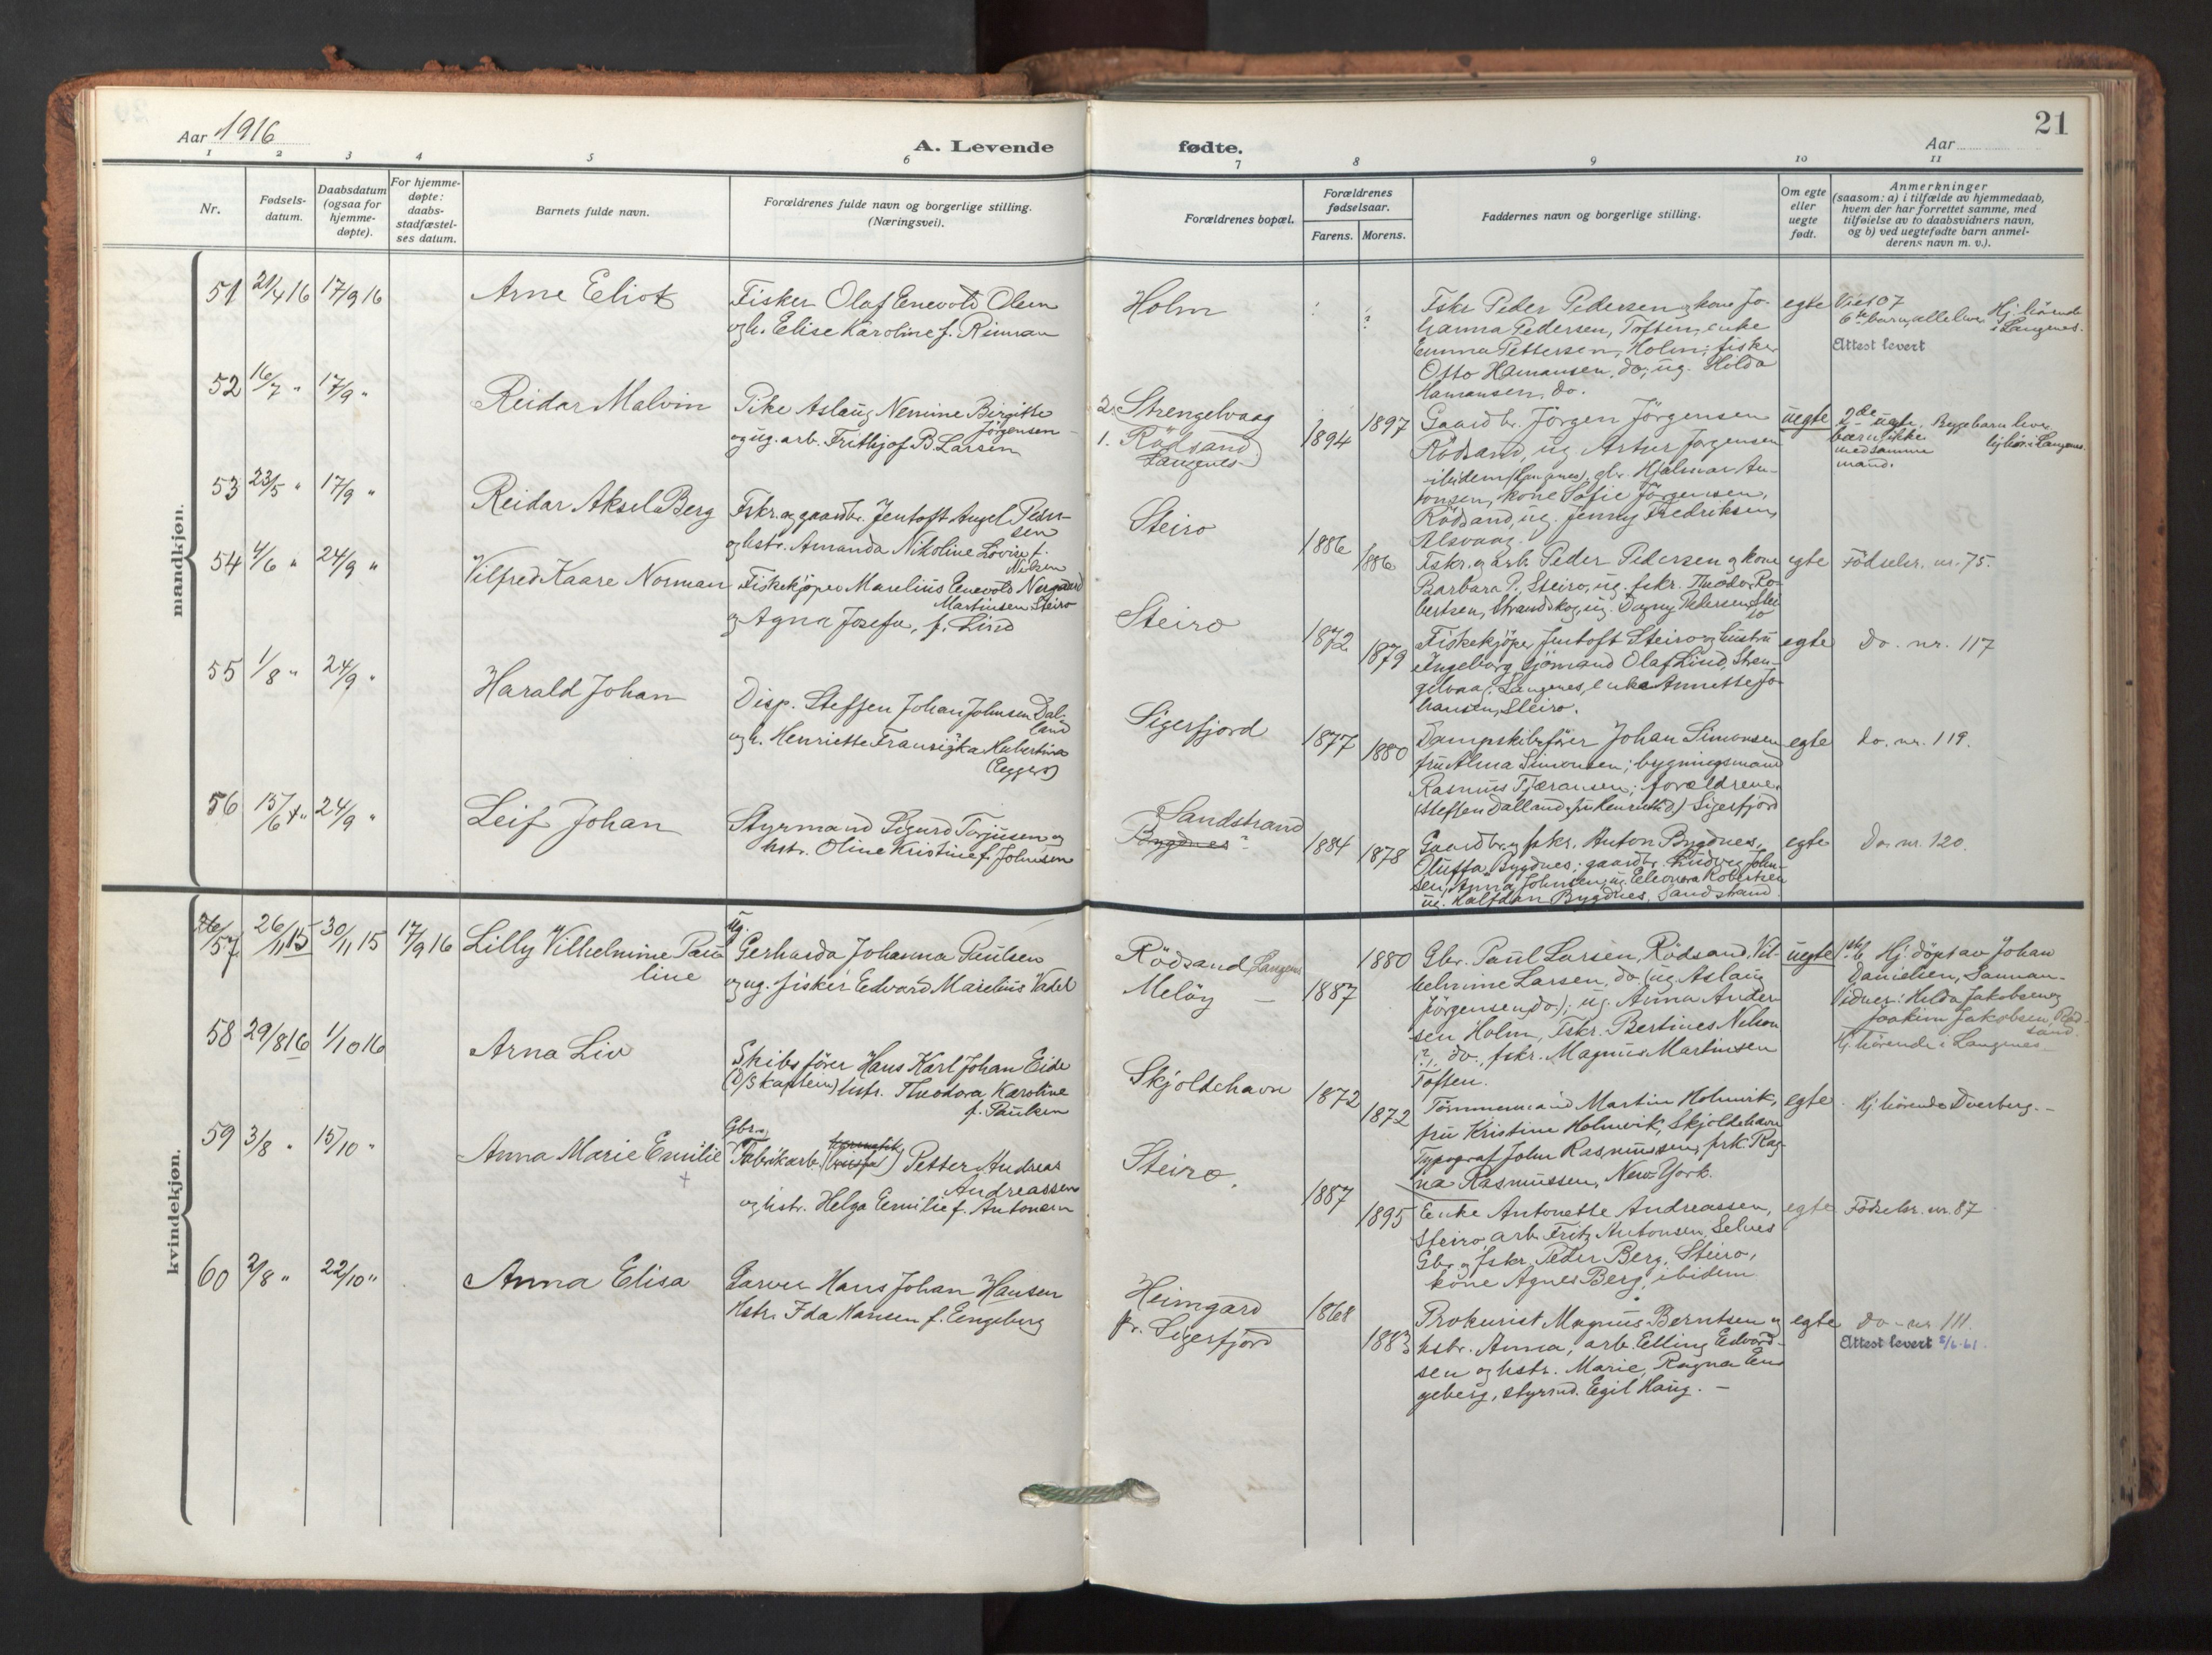 Aar 1916
A. Levende
fødte.
Aar
21
1 2 3 4 5 6 7 8 9 10 11
Nr.
Fødsels-
datum.
Daabsdatum
(ogsaa for
hjemme-
døpte).
For hjemme-
døpte:
daabs-
stadfæstel-
ses datum.
Barnets fulde navn.
Forældrenes fulde navn og borgerlige stilling.
(Næringsvei).
Forældrenes bopæl.
Forældrenes
fødselsaar.
Farens. Morens.
Faddernes navn og borgerlige stilling.
Om egte
eller
uegte
født.
Anmerkninger
(saasom: a) i tilfælde av hjemmedaab,
hvem der har forrettet samme, med
tilføielse av to daabsvidners navn,
og b) ved uegtefødte barn anmel-
derens navn m. v.).
mandkjøn.
51 21/4 16 17/9 16
Arne Eliot
Fisker Olaf Enevold Olsen
og h. Elise Karoline f. Rinman
Holm
Fskr Peder Pedersen og kone Jo-
hanna Pedersen, Toften, enke
Emma Pettersen, Holm; fisker
Otto Hamansen, do; ug. Hilda
Hamansen, do.
egte
Viet 07
6te barn, alle lever. Hj. hörende
i Langenes.
Attest levert
52 16/7 " 17/9 "
Reidar Malvin
Pike Aslaug Nemine Birgitte
Jörgensen
og ug. arb. Frithjof B. Larsen
2. Strengelvaag
1. Rödsand
Langenes
1894 1897
Gaardbr. Jörgen Jörgensen
Rödsand, ug Artur Jörgensen
ibidem (Langenes), gbr. Hjalmar An-
tonsen, kone Sofie Jörgensen,
Rödsand, ug. Jenny Fredriksen,
Alsvaag.
uegte
2de uegte. Begge barn lever
barn, ikke
med samme
mand.
hj.hör. i Langenes.
53 23/5 " 17/9 "
Reidar Aksel Berg
Fskr. og gaardbr. Jentoft Angel Peder-
sen
og hstr. Amanda Nikoline Lovise f.
Nilsen
Steiro
1886 1886
Fskr. og arb. Peder Pedersen og kone
Barbara P., Steiro, ug. fskr. Theodor Ro-
bertsen, Strandskog, ug. Dagny Pedersen, Stei-
ro
egte
Födselsr. nr. 75.
54 4/6 " 24/9 "
Vilfred Kaare Norman
Fiskekjöper Marelius Enevold Nergaard
Martinsen Steiro
og Agna Josefa, f. Lind
Steiro
1872 1879
Fiskekjöper Jentoft Steiro og hustru
Ingeborg, sjömand Olaf Lind, Stren-
gelvaag, Langenes, enke Annette Jo-
hansen, Steiro.
egte
Do. nr. 117
55 1/8 " 24/9 "
Harald Johan
Disp. Steffen Johan Johnsen Dal-
land
og h. Henriette Franziska Hubertina
(Eggers)
Sigerfjord
1877 1880
Dampskibsfører Johan Simonsen
fru Alma Simonsen; bygningsmand
Rasmus Tjæransen; forældrene
(Steffen Dalland, fru Henriette D.) Sigerfjord
egte
do. nr. 119.
56 15/6 " 24/9 "
Leif Johan
Styrmand Sigurd Torjusen og
hstr. Oline Kristine f. Johnsen
Sandstrand
Bygdnes
1884 1878
Gaardbr. og fskr. Anton Bygdnes,
Oluffa Bygdnes; gaardbr. Ludvig John-
sen, Anna Johnsen, ug. Eleonora Robertsen
ug. Halfdan Bygdnes, Sandstrand
egte
Do. nr. 120.
kvindekjøn.
57 26/11 15 30/11 15 17/9 16
Lilly Vilhelmine Pau-
line
Ug.
Gerharda Johanna Paulsen
og ug. fisker Edvard Marelius Vadel
Rödsand Langenes
Melöy —
1887 1880
Gbr. Paul Larsen, Rödsand, Vil-
helmine Larsen, do (ug Aslaug
Jörgensen, do); ug. Anna Ander-
sen Holm, Fskr. Bertines Nelson
(?), do., fskr. Magnus Martinsen
Toften.
uegte
1ste b Hj. döpt av Johan
Danielsen,
Vidner: Hilda Jakobsen og
Joakim Jakobsen, Röd-
sand
Hj. hörende i Langenes
58 29/8 16 1/10 16
Arna Liv
Skibsfører Hans Karl Johan Eide
(D/S kaptein) hstr. Theodora Karoline
f. Paulsen
Skjoldehavn
1872 1872
Tömmermand Martin Holmvik,
fru Kristine Holmvik, Skjoldehavn
Typograf John Rasmussen, frk. Rag-
na Rasmussen, New York.
egte
Hj. hörende Dverberg. —
59 3/8 " 15/10 "
Anna Marie Emilie
Gbr. og
Fabrikarb. Petter Andreas
Andreassen
og hstr. Helga Emilie f. Antonsen
Steiro.
1887 1895
Enke Antonette Andreassen,
Steiro arb. Fritz Antonsen, Selnes
Gbr. og fskr. Peder Berg, Steiro,
kone Agnes Berg, ibidem
egte
Födselsr. nr. 87
60 2/8 " 22/10 "
Anna Elisa
Garver Hans Johan Hansen
Hstr. Ida Hansen f. Engeberg
Heimgard
pr. Sigerfjord
1868 1883
Prokurist Magnus Berntsen og
hstr. Anna, arb. Elling Edvard-
sen og hstr. Marie, Ragna En-
geberg, styrmd. Egil Haug. —
egte
do — nr 111.
Attest levert 8/6-61